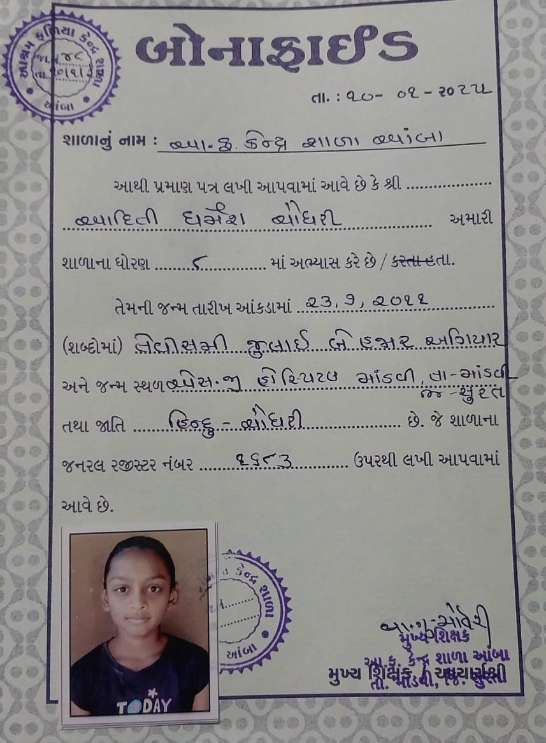 આશ્રમ ફળિયા કેન્દ્ર શાળા
આંબા
બોનાફાઈડ
તા. : ૧૦- ૦૧ - ૨૦૨૫
શાળાનું નામ : આ.ફ. કેન્દ્ર શાળા આંબા
આથી પ્રમાણ પત્ર લખી આપવામાં આવે છે કે શ્રી
આદિતી ધર્મેશ ચૌધરી અમારી
શાળાના ધોરણ ૮ માં અભ્યાસ કરે છે / કરતા હતા.
તેમની જન્મ તારીખ આંકડામાં ૨૩, ૭, ૨૦૧૧
(શબ્દોમાં) ત્રેવીસમી જુલાઈ બે હજાર અગિયાર
અને જન્મ સ્થળ એસ.જી હોસ્પિટલ માંડવી, તા-માંડવી
જી-સુરત
તથા જાતિ હિન્દુ - ચૌધરી છે. જે શાળાના
જનરલ રજીસ્ટર નંબર ૧૬૮૩ ઉપરથી લખી આપવામાં
આવે છે.
TODAY
કેન્દ્ર શાળા
આંબા
મુખ્ય શિક્ષક
આ.ફ. કેન્દ્ર શાળા આંબા
મુખ્ય શિક્ષક / આચાર્યશ્રી
તા. માંડવી, જિ. સુરત